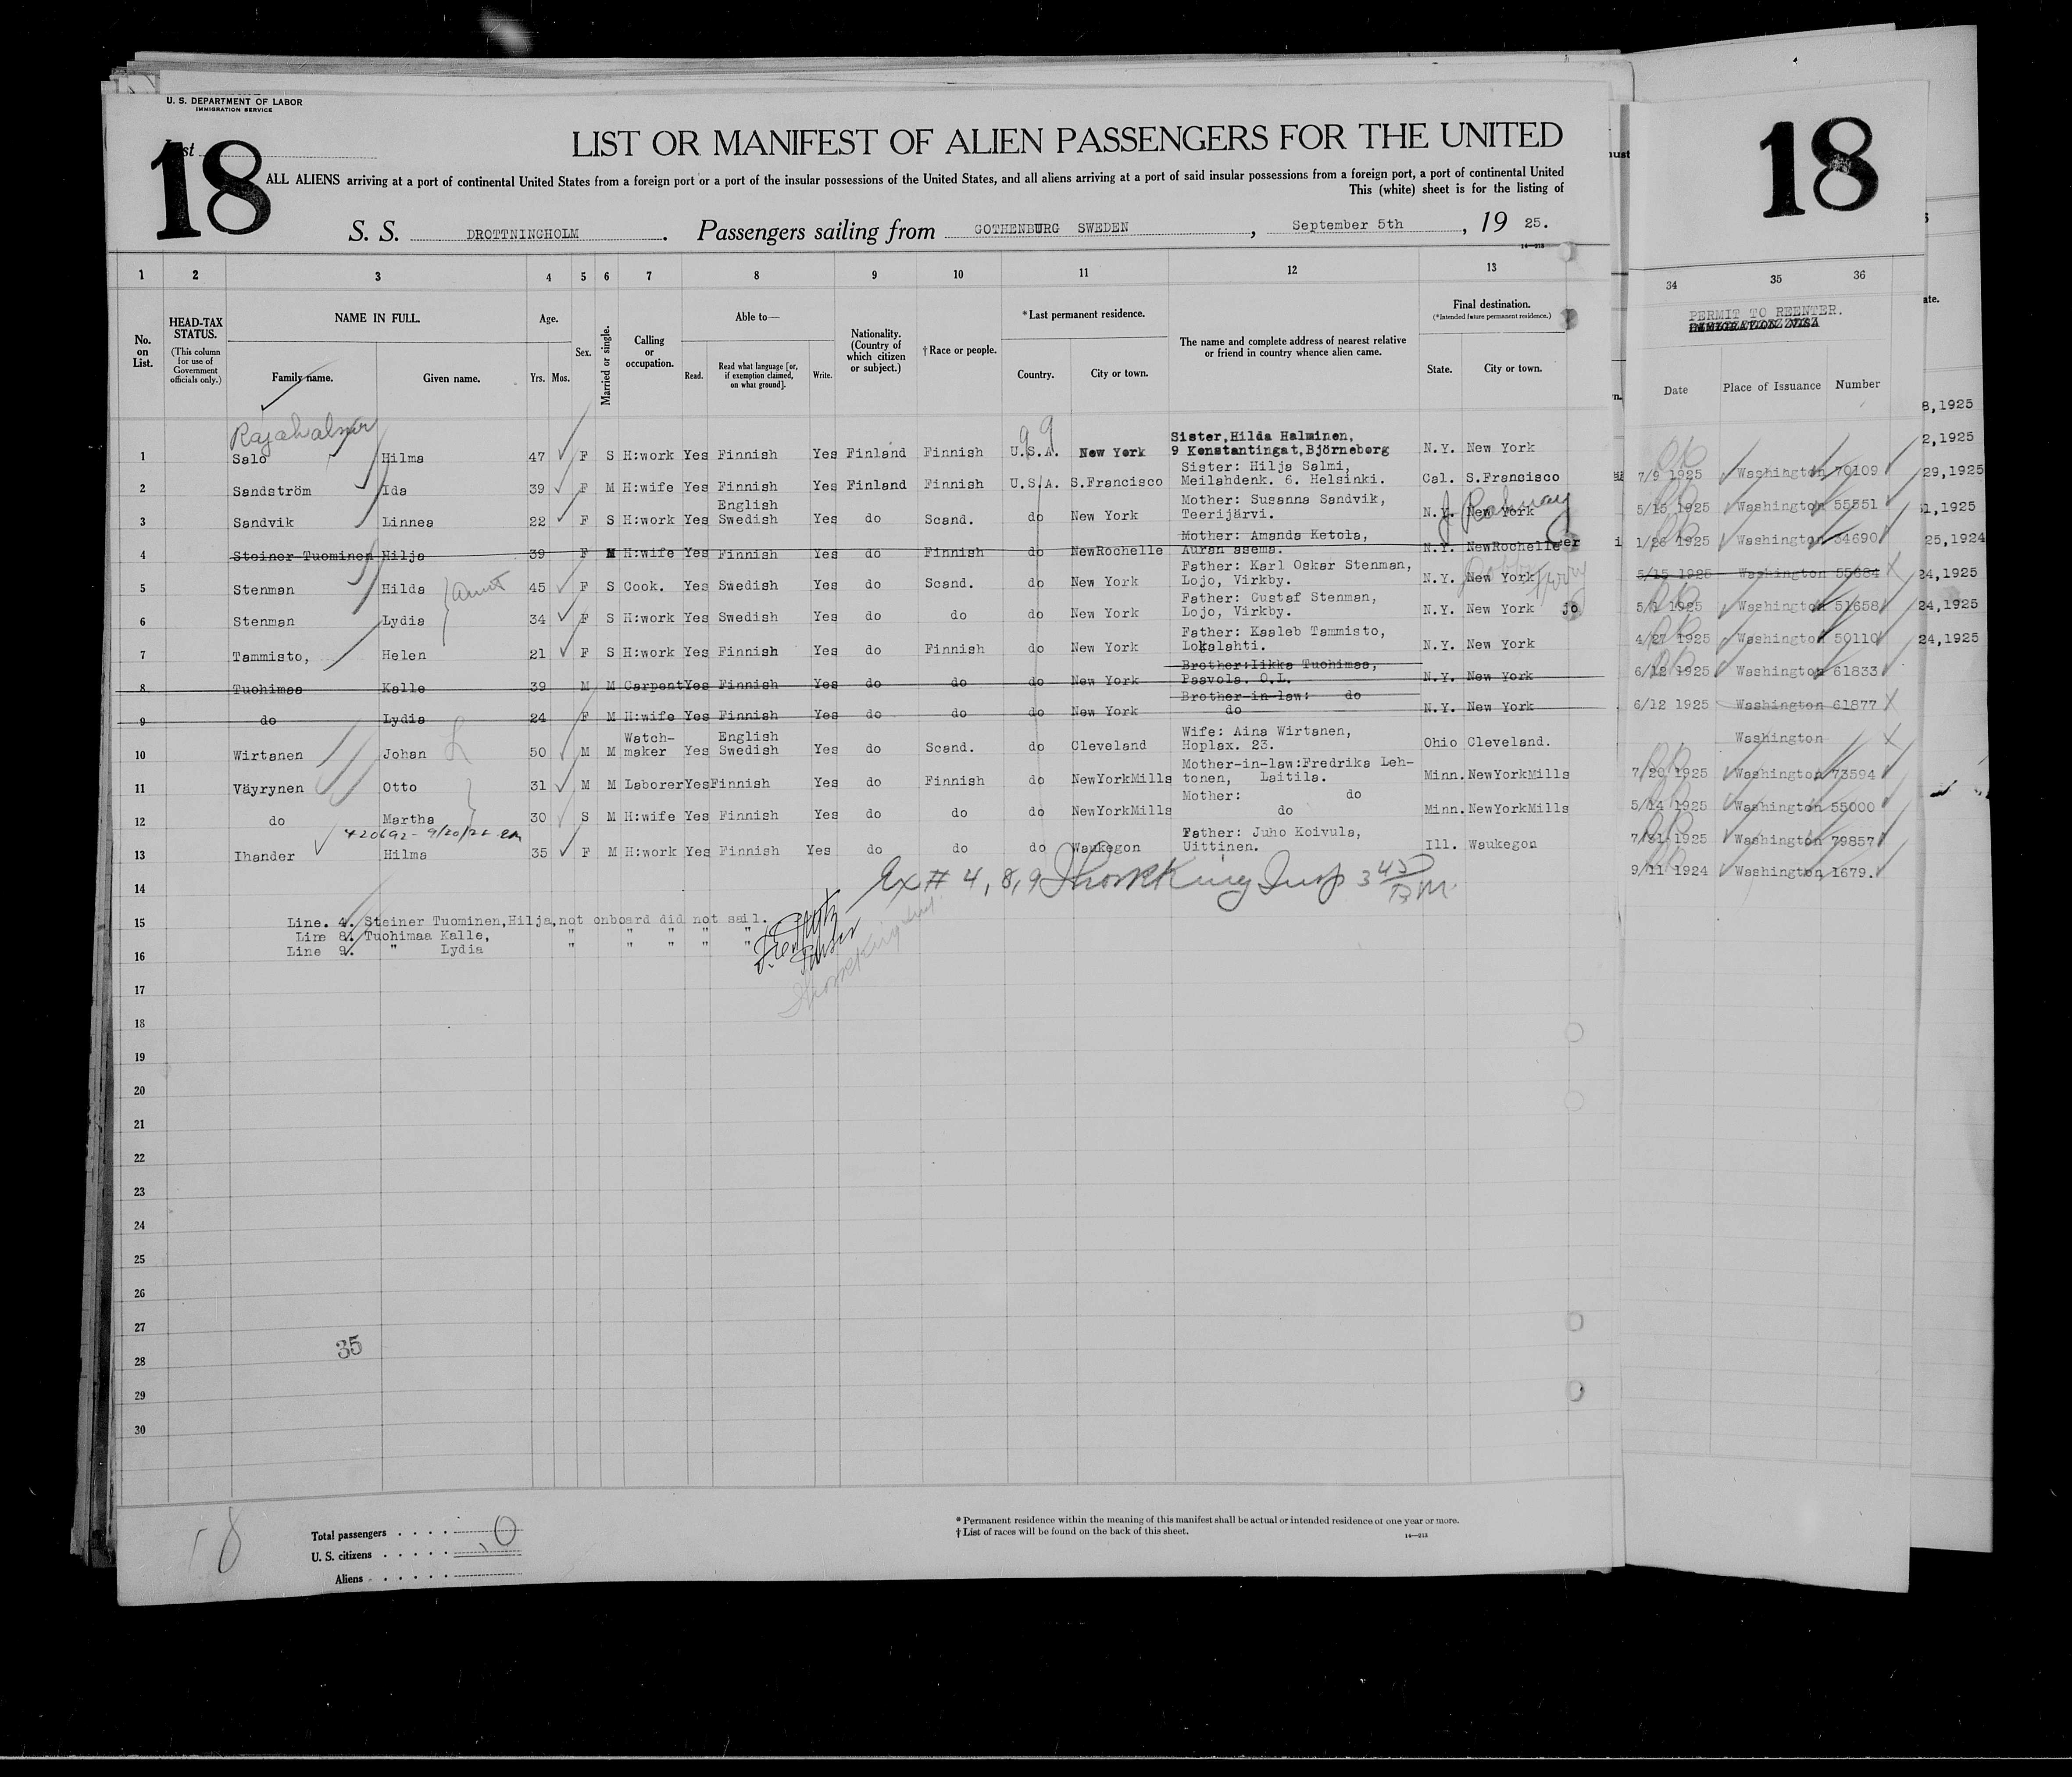 U. S. DEPARTMENT OF LABOR
IMMIGRATION SERVICE
18
LIST OR MANIFEST OF ALIEN PASSENGERS FOR THE UNITED
18
ALL ALIENS arriving at a port of continental United States from a foreign port or a port of the insular possessions of the United States, and all aliens arriving at a port of said insular possessions from a foreign port, a port of continental United
This (white) sheet is for the listing of
S. S. DROTTNINGHOLM. Passengers sailing from GOTHENBURG SWEDEN, September 5th, 19 25.
1 2 3 4 5 6 7 8 9 10 11 12 13 34 35 36
No. on List. HEAD-TAX STATUS. (This column for use of Government officials only.) NAME IN FULL. Family name. Given name. Age. Yrs. Mos. Sex. Married or single. Calling or occupation. Able to— Read. Read what language [or, if exemption claimed, on what ground]. Write. Nationality. (Country of which citizen or subject.) † Race or people. *Last permanent residence. Country. City or town. The name and complete address of nearest relative or friend in country whence alien came. Final destination. (*Intended future permanent residence.) State. City or town.
PERMIT TO REENTER.
Date Place of Issuance Number
1 Salo Hilma 47 F S H:work Yes Finnish Yes Finland Finnish U.S.A. New York Sister,Hilda Halminen, 9 Konstantingat,Björneborg N.Y. New York 7/9 1925 Washington 70109
2 Sandström Ida 39 F M H:wife Yes Finnish Yes Finland Finnish U.S.A. S.Francisco Sister: Hilja Salmi, Meilahdenk. 6. Helsinki. Cal. S.Francisco 5/15 1925 Washington 55551
3 Sandvik Linnea 22 F S H:work Yes English Swedish Yes do Scand. do New York Mother: Susanna Sandvik, Teerijärvi. N.Y. New York J Rahway 1/26 1925 Washington 34690
4 Steiner-Tuominen Hilja 39 F M H:wife Yes Finnish Yes do Finnish do NewRochelle Mother: Amanda Ketola, Auran asema. N.Y. NewRochelle 5/15 1925 Washington 55684
5 Stenman Hilda Aunt 45 F S Cook. Yes Swedish Yes do Scand. do New York Father: Karl Oskar Stenman, Lojo, Virkby. N.Y. New York Dobbs Ferry 5/1 1925 Washington 51658
6 Stenman Lydia 34 F S H:work Yes Swedish Yes do do do New York Father: Gustaf Stenman, Lojo, Virkby. N.Y. New York 4/27 1925 Washington 50110
7 Tammisto, Helen 21 F S H:work Yes Finnish Yes do Finnish do New York Father: Kaaleb Tammisto, Lokalahti. N.Y. New York 6/12 1925 Washington 61833
8 Tuohimaa Kalle 39 M M Carpent Yes Finnish Yes do do do New York Brother:Iikka Tuohimaa, Paavola. O.L. N.Y. New York 6/12 1925 Washington 61877
9 do Lydia 24 F M H:wife Yes Finnish Yes do do do New York Brother-in-law: do do N.Y. New York Washington
10 Wirtanen Johan 50 M M Watch-maker Yes English Swedish Yes do Scand. do Cleveland Wife: Aina Wirtanen, Hoplax. 23. Ohio Cleveland. 7/20 1925 Washington 73594
11 Väyrynen Otto 31 M M Laborer Yes Finnish Yes do Finnish do NewYorkMills Mother-in-law:Fredrika Leh-tonen, Laitila. Minn. NewYorkMills 5/14 1925 Washington 55000
12 do Martha 30 S M H:wife Yes Finnish Yes do do do NewYorkMills Mother: do do Minn. NewYorkMills 7/31 1925 Washington 79857
13 Ihander Hilma 35 F M H:work Yes Finnish Yes do do do Waukegon Father: Juho Koivula, Uittinen. Ill. Waukegon 9/11 1924 Washington 1679.
14 Ex # 4, 8, 9
15 Line. 4. Steiner Tuominen,Hilja,not onboard did not sail.
Line 8. Tuohimaa Kalle, " " " " "
16 Line 9. " Lydia " " " " "
17
18
19
20
21
22
23
24
25
26
27
35
28
29
30
18
Total passengers . . . . 0
U. S. citizens . . . . .
Aliens . . . . . .
* Permanent residence within the meaning of this manifest shall be actual or intended residence of one year or more.
† List of races will be found on the back of this sheet.
14—213
8,1925
2,1925
29,1925
1,1925
25,1924
24,1925
24,1925
24,1925